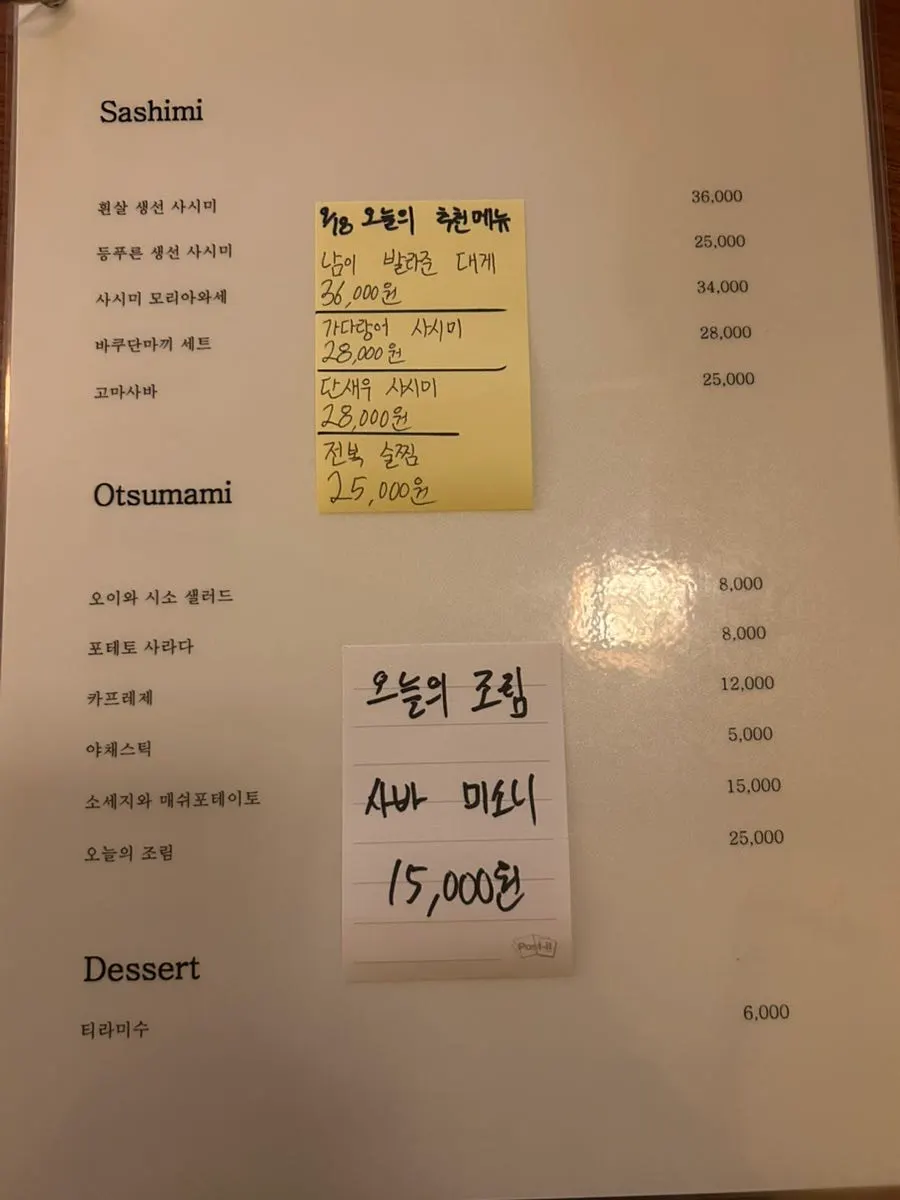 Sashimi
흰살 생선 사시미 36,000
등푸른 생선 사시미 25,000
사시미 모리아와세 34,000
바쿠단마끼 세트 28,000
고마사바 25,000
오늘의 추천메뉴
남이 발라준 대게
36,000원
가다랑어 사시미
28,000원
단새우 사시미
28,000원
전복 술찜
25,000원
Otsumami
오이와 시소 샐러드 8,000
포테토 사라다 8,000
카프레제 12,000
야채스틱 5,000
소세지와 매쉬포테이토 15,000
오늘의 조림 25,000
오늘의 조림
사바 미소니
15,000원
Post-it
Dessert
티라미수 6,000